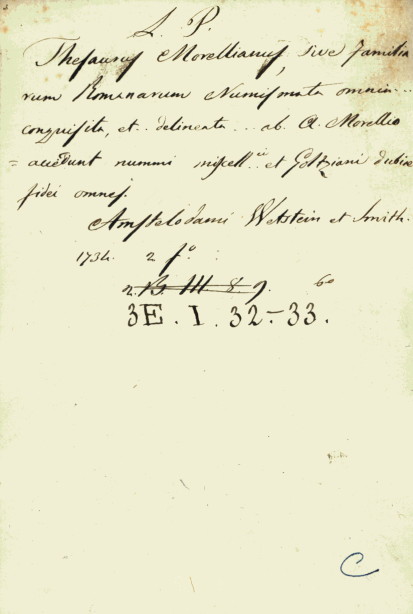 L. P.
Thesaurus Morellianus, sive familia
rum Romanarum Numismata omnia...
conquisita, et .. delineata ... ab. A. Morellio
= accedunt nummi miscell.ii et Goltziani dubiae
fidei omnes.
Amstelodami Wetstein et Smith.
1734. 2 fo :
2. B. III. 8. 9. 60
3E. I. 32-33.
C